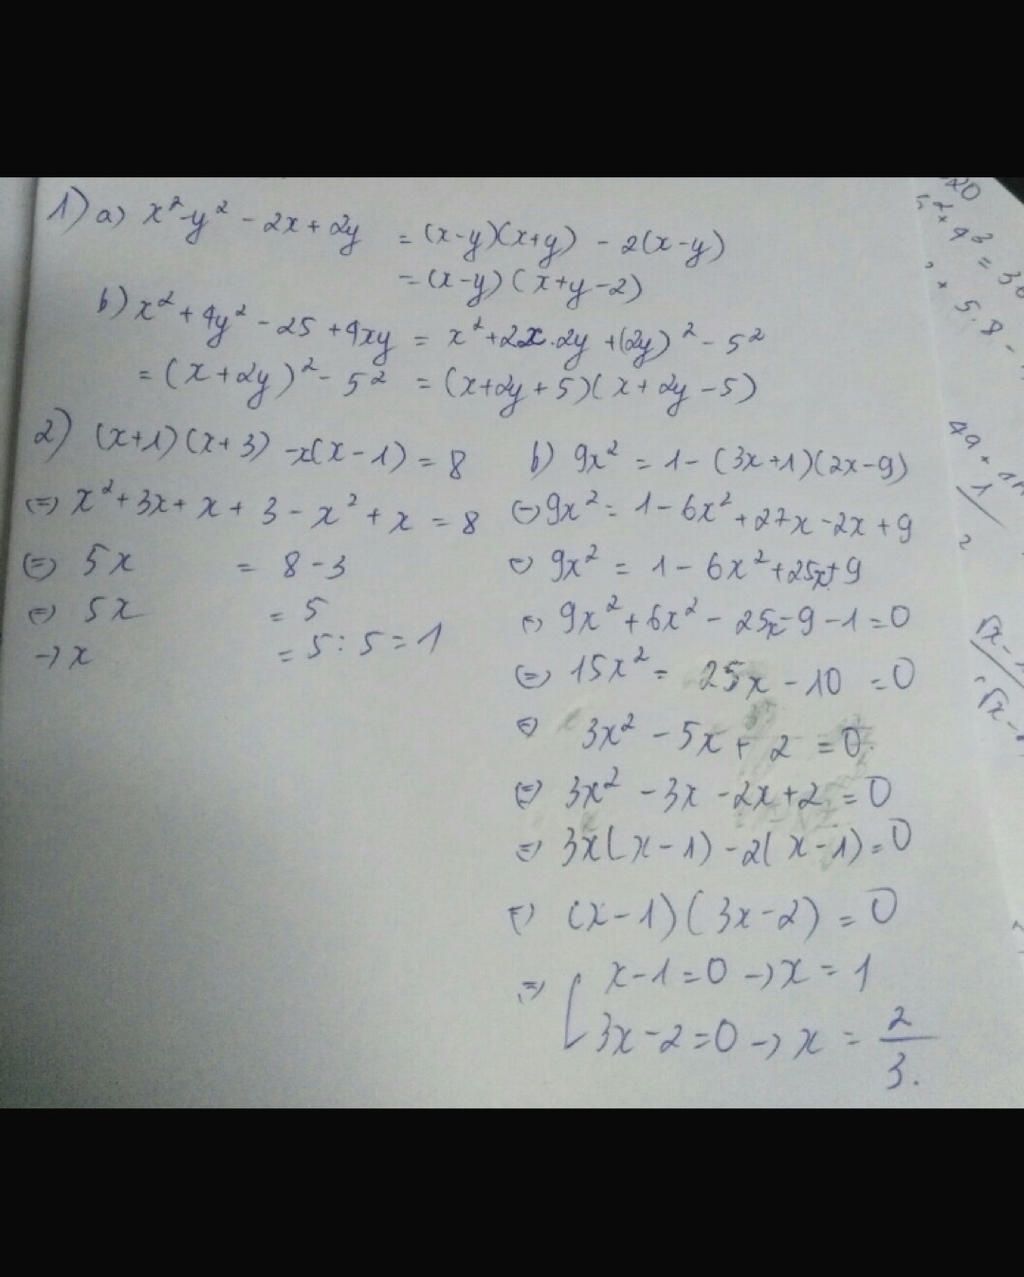 1) a) x² - y² - 2x + 2y = (x-y)(x+y) - 2(x-y)
= (x-y) (x+y-2)
b) x² + 4y² - 25 + 4xy = x² + 2x.2y + (2y)² - 5²
= (x+2y)² - 5² = (x+2y+5)(x+2y-5)
2) (x+1)(x+3) - x(x-1) = 8
(=) x² + 3x + x + 3 - x² + x = 8
(=) 5x = 8-3
=) 5x = 5
-> x = 5:5 = 1
b) 9x² = 1 - (3x+1)(2x-9)
(=) 9x² = 1 - 6x² + 27x - 2x + 9
9x² = 1 - 6x² + 25x + 9
9x² + 6x² - 25x - 9 - 1 = 0
(=) 15x² - 25x - 10 = 0
3x² - 5x + 2 = 0
(=) 3x² - 3x - 2x + 2 = 0
=) 3x(x-1) - 2(x-1) = 0
(x-1)(3x-2) = 0
=) [ x-1=0 -> x = 1
3x-2=0 -> x = 2/3.